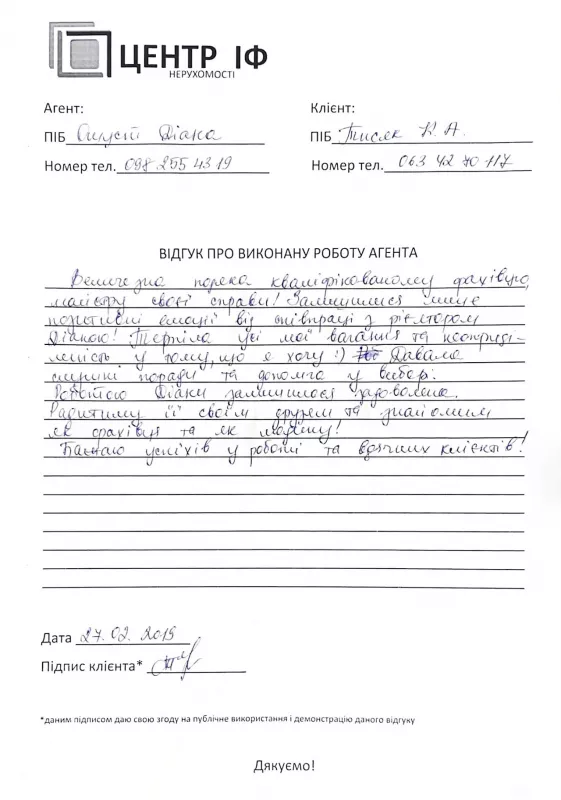 ЦЕНТР ІФ
НЕРУХОМОСТІ
Агент:
Клієнт:
ПІБ Діана
ПІБ Тисяк Н. А.
Номер тел. 098 255 43 19
Номер тел. 063 42 70 117
ВІДГУК ПРО ВИКОНАНУ РОБОТУ АГЕНТА
Величезна кваліфікованому фахівцю,
майстру своєї справи! Залишилися лише
позитивні емоції від співпраці з рієлтором
Діаною! Терпіла усі мої вагання та неопреді-
леність у тому, що я хочу :) Давала
слушні поради та допомга у виборі.
Роботою Діани залишилася задоволена.
Радитиму її своїм друзям та знайомим
як фахівця та як людину!
Бажаю успіхів у роботі та вдячних клієнтів!
Дата 27.02.2019
Підпис клієнта*
*даним підписом даю свою згоду на публічне використання і демонстрацію даного відгуку
Дякуємо!